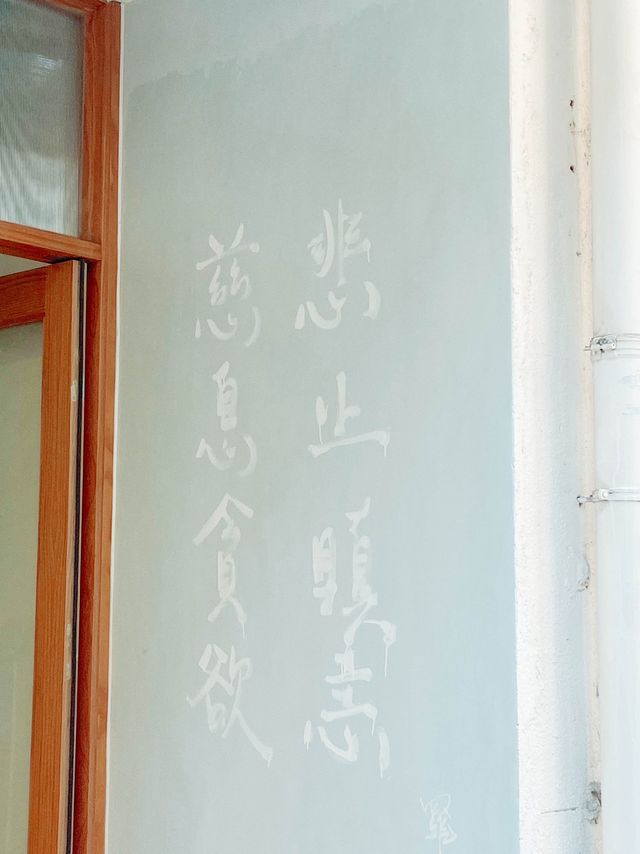 悲止瞋恚
慈息貪欲